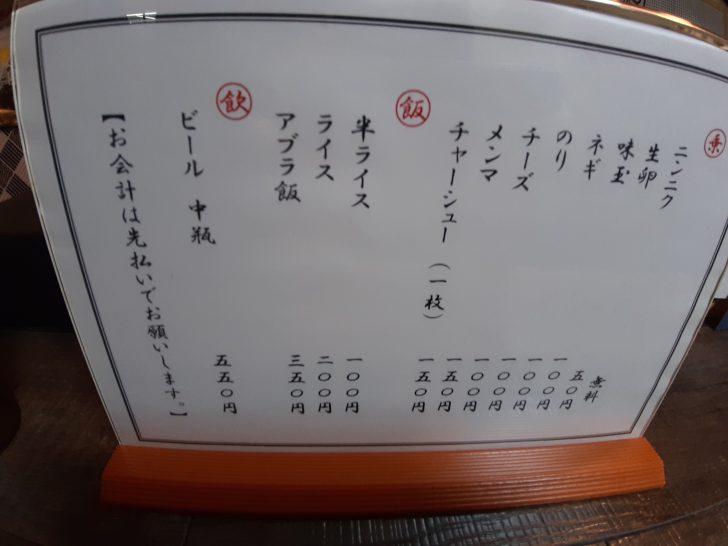 乗
ニンニク 無料
生卵 五〇円
味玉 一〇〇円
ネギ 一〇〇円
のり 一〇〇円
チーズ 一〇〇円
メンマ 一五〇円
チャーシュー(一枚) 一五〇円
飯
半ライス 一〇〇円
ライス 二〇〇円
アブラ飯 三五〇円
飲
ビール 中瓶 五五〇円
【お会計は先払いでお願いします。】